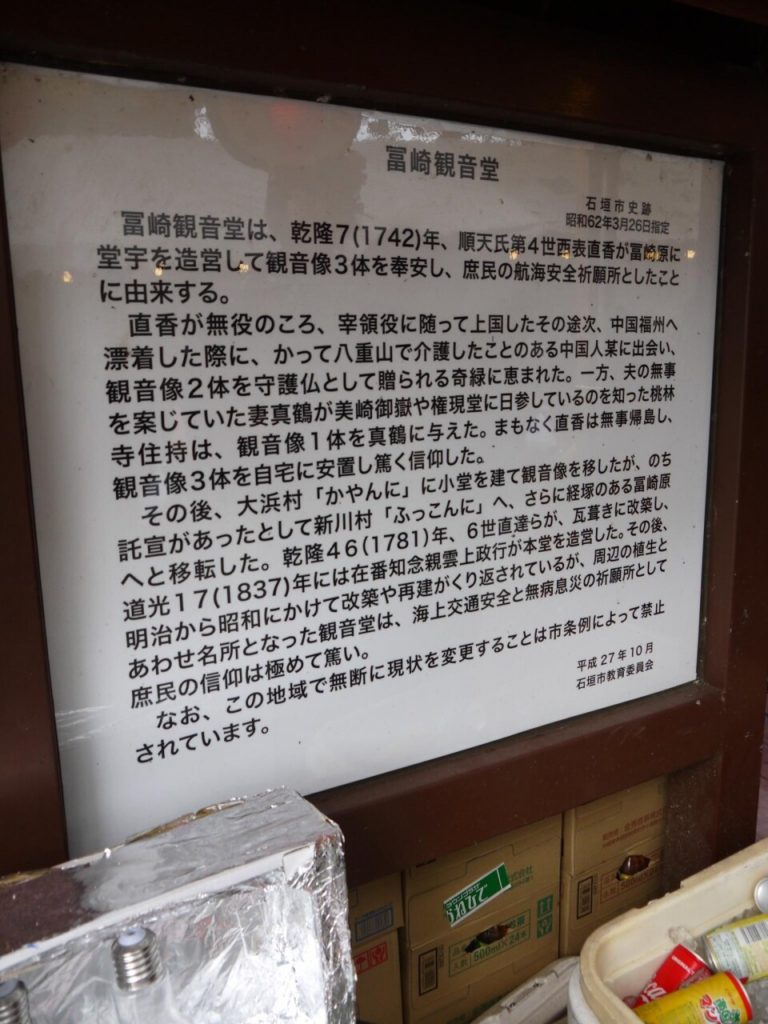 冨崎観音堂
石垣市史跡
昭和62年3月26日指定
冨崎観音堂は、乾隆7(1742)年、順天氏第4世西表直香が冨崎原に
堂宇を造営して観音像3体を奉安し、庶民の航海安全祈願所としたこと
に由来する。
直香が無役のころ、宰領役に随って上国したその途次、中国福州へ
漂着した際に、かって八重山で介護したことのある中国人某に出会い、
観音像2体を守護仏として贈られる奇縁に恵まれた。一方、夫の無事
を案じていた妻真鶴が美崎御嶽や権現堂に日参しているのを知った桃林
寺住持は、観音像1体を真鶴に与えた。まもなく直香は無事帰島し、
観音像3体を自宅に安置し篤く信仰した。
その後、大浜村「かやんに」に小堂を建て観音像を移したが、のち
託宣があったとして新川村「ふっこんに」へ、さらに経塚のある冨崎原
へと移転した。乾隆46(1781)年、6世直達らが、瓦葺きに改築し、
道光17(1837)年には在番知念親雲上政行が本堂を造営した。その後、
明治から昭和にかけて改築や再建がくり返されているが、周辺の植生と
あわせ名所となった観音堂は、海上交通安全と無病息災の祈願所として
庶民の信仰は極めて篤い。
なお、この地域で無断に現状を変更することは市条例によって禁止
されています。
平成27年10月
石垣市教育委員会
入数 500ml×24本